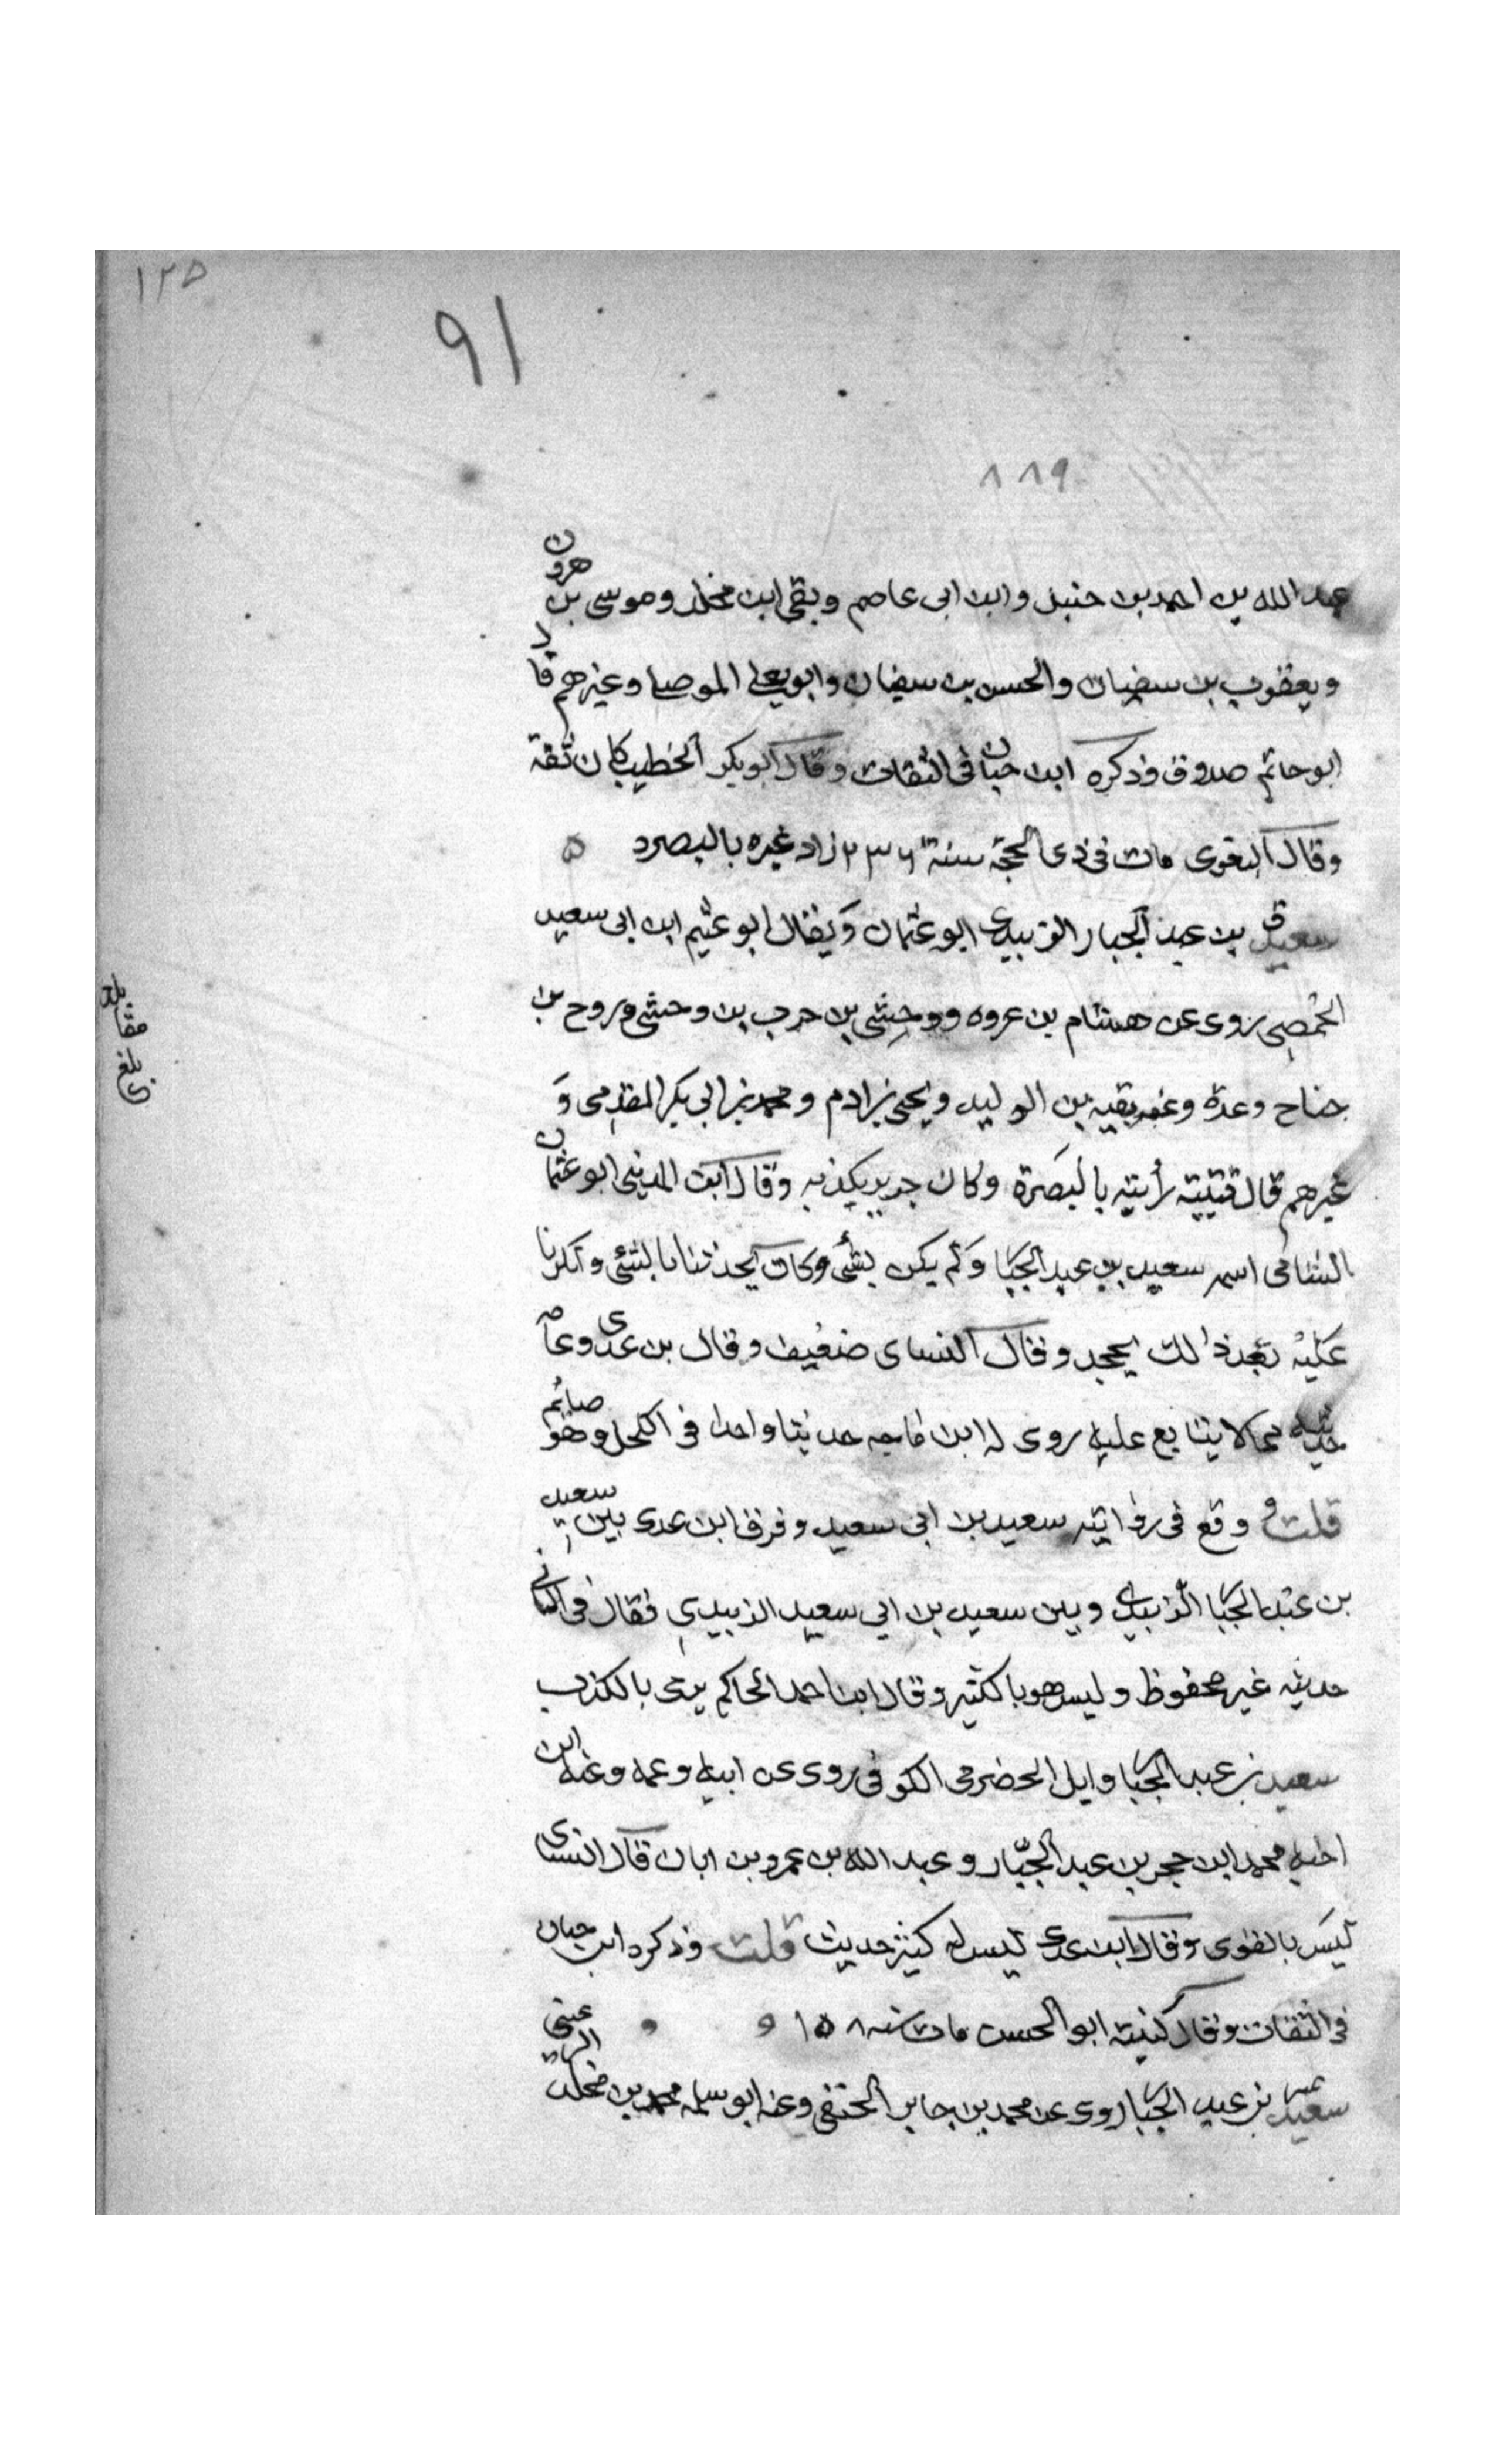 ١٢٥
٩١
٨٨٩
عبد الله بن احمد بن حنبل وابن ابى عاصم وبقى ابن مخلد وموسى بن هرون
ويعقوب بن سفيان والحسن بن سفيان وابو يعلى الموصلى وغيرهم قال
ابو حاتم صدوق وذكره ابن حبان فى الثقات وقال ابو بكر الخطيب كان ثقة
وقال البغوى مات فى ذى الحجة سنة ٢٣٦ زاد غيره بالبصره ٥
سعيد ق بن عبد الجبار الزبيدى ابو عثمان ويقال ابو عثيم ابن ابى سعيد
الحمصى روى عن هشام بن عروه ووحشى بن حرب بن وحشى وروح بن
جناح وعدة وعنه بقيه بن الوليد ويحيى بن ادم ومحمد بن ابى بكر المقدمى و
غيرهم قال قتيبة رأيته بالبصرة وكان جرير يكذبه وقال ابن المدينى ابو عثمان
الشامى اسمه سعيد بن عبد الجبا ولم يكن بشئ وكان يحدثنا بالشئ وانكرنا
عليه بعد ذلك يجحد وقال النساى ضعيف وقال بن عدى وعامه
حديثه مما لا يتابع عليه روى له ابن ماجه حديثا واحدا فى الكحل وهو صائم
قلت ووقع فى روايته سعيد بن ابى سعيد وفرق ابن عدى بين سعيد
بن عبد الجبا الزبيدى وبين سعيد بن ابى سعيد الزبيدي فقال فى الثانى
حديثه غير محفوظ وليس هو بالكثير وقال ابن احمد الحاكم يرمى بالكذب
سعيد بن عبد الجبا وايل الحضرمى الكوفى روى عن ابيه وعمه وعنه ابن
اخيه محمد ابن حجر بن عبد الجبار وعبد الله بن عمرو بن ابان قال النساى
ليس بالقوى وقال ابن عدى ليس له كثير حديث قلت وذكره ابن حبان
فى الثقات وقال كنيته ابو الحسن مات سنه ١٥٨
سعيد تمييز بن عبد الجبا روى عن محمد بن جابر الحنفى وعنه ابو سلمه محمد بن مخلد الرعينى
بلغ
مقابله